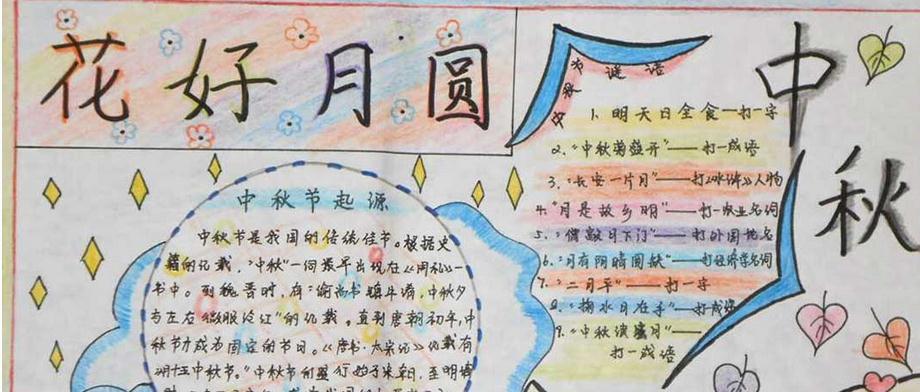 花好月圆
中秋
中秋节谜语
1. 明天日全食——打一字
2. "中秋菊盛开"——打一成语
3. "长安一片月"——打《水浒》人物
4. "月是故乡明"——打一 名词
5. "僧敲月下门"——打外国地名
6. "月有阴晴圆缺"——打经济学名词
7. "二月平"——打一字
8. "掬水月在手"——打成语
9. "中秋 月"——
打一成语
中秋节起源
中秋节是我国的传统佳节。根据史
籍的记载,"中秋"一词最早出现在《周礼》一
书中。到魏晋时,有"谕尚书镇牛渚,中秋夕
与左右微服泛江"的记载。直到唐朝初年,中
秋节才成为固定的节日。《唐书·太宗记》记载有
"八月十五中秋节。"中秋节的盛行始于宋朝,至明清